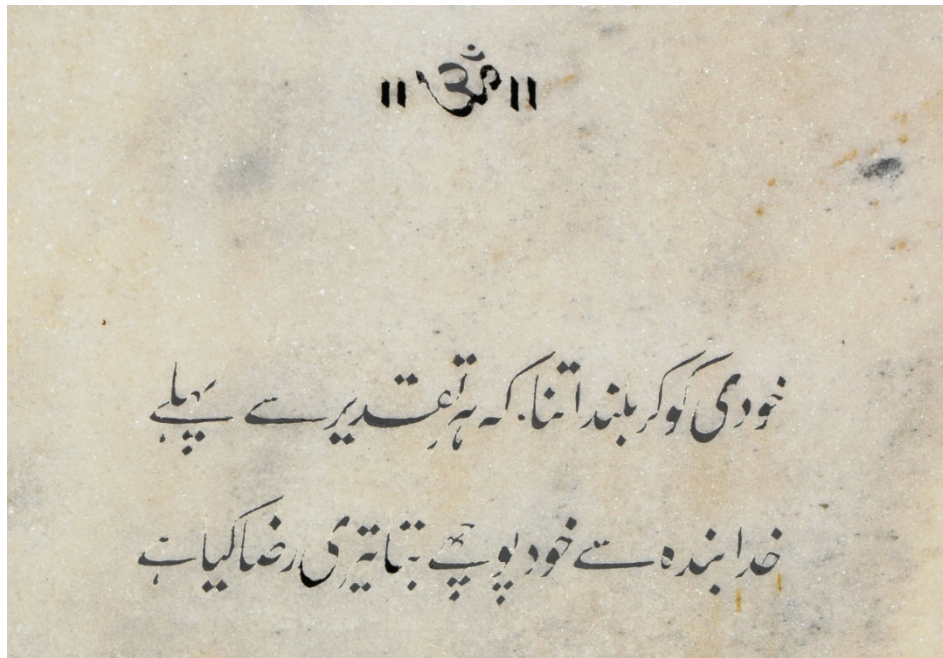 ॥ ॐ ॥
خودی کو کر بلند اتنا کہ ہر تقدیر سے پہلے
خدا بندہ سے خود پوچھے بتا تیری رضا کیا ہے